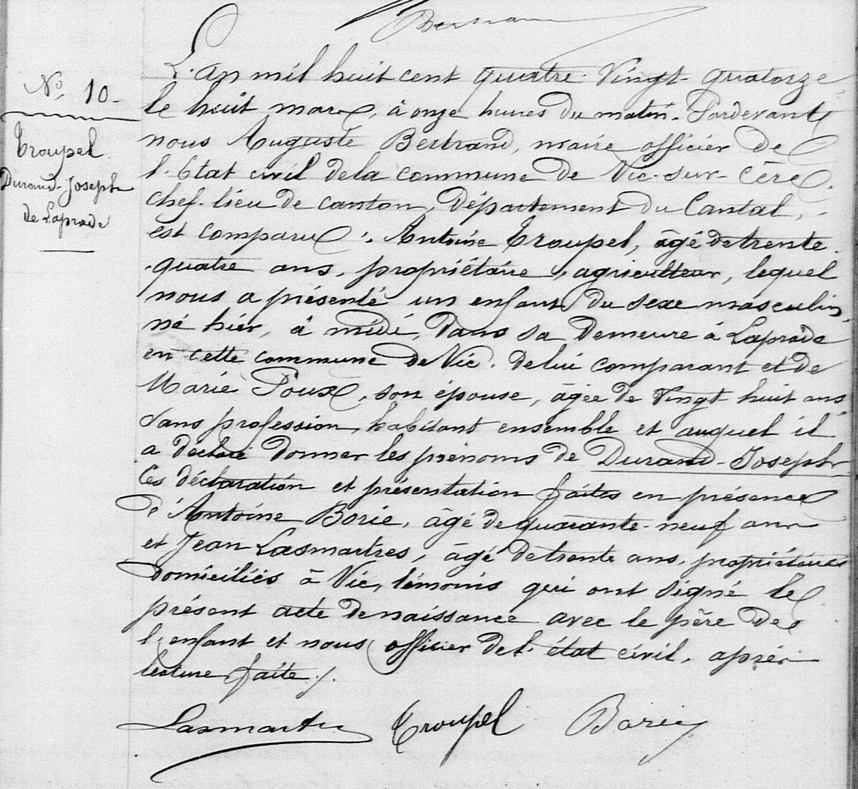 Bertrand
Nº 10.
Troupel
Durand-Joseph
de Laprade
L'an mil huit cent quatre-vingt-quatorze
le huit mars, à onze heures du matin. Pardevant
nous Auguste Bertrand, maire officier de
l'État civil de la commune de Vic-sur-Cère,
chef-lieu de canton, département du Cantal,
est comparu : Antoine Troupel, âgé de trente-
quatre ans, propriétaire, agriculteur, lequel
nous a présenté un enfant du sexe masculin,
né hier, à midi, dans sa demeure à Laprade
en cette commune de Vic. de lui comparant et de
Marie Poux, son épouse, âgée de vingt huit ans
sans profession, habitant ensemble et auquel il
a déclaré donner les prénoms de Durand-Joseph
Ces déclaration et présentation faites en présence
d'Antoine Borie, âgé de quarante-neuf ans
et Jean Lasmartres, âgé de trente ans, propriétaires
domiciliés à Vic, témoins qui ont signé le
présent acte de naissance avec le père de
l'enfant et nous officier de l'état civil, après
lecture faite ./.
Lasmartres Troupel Borie